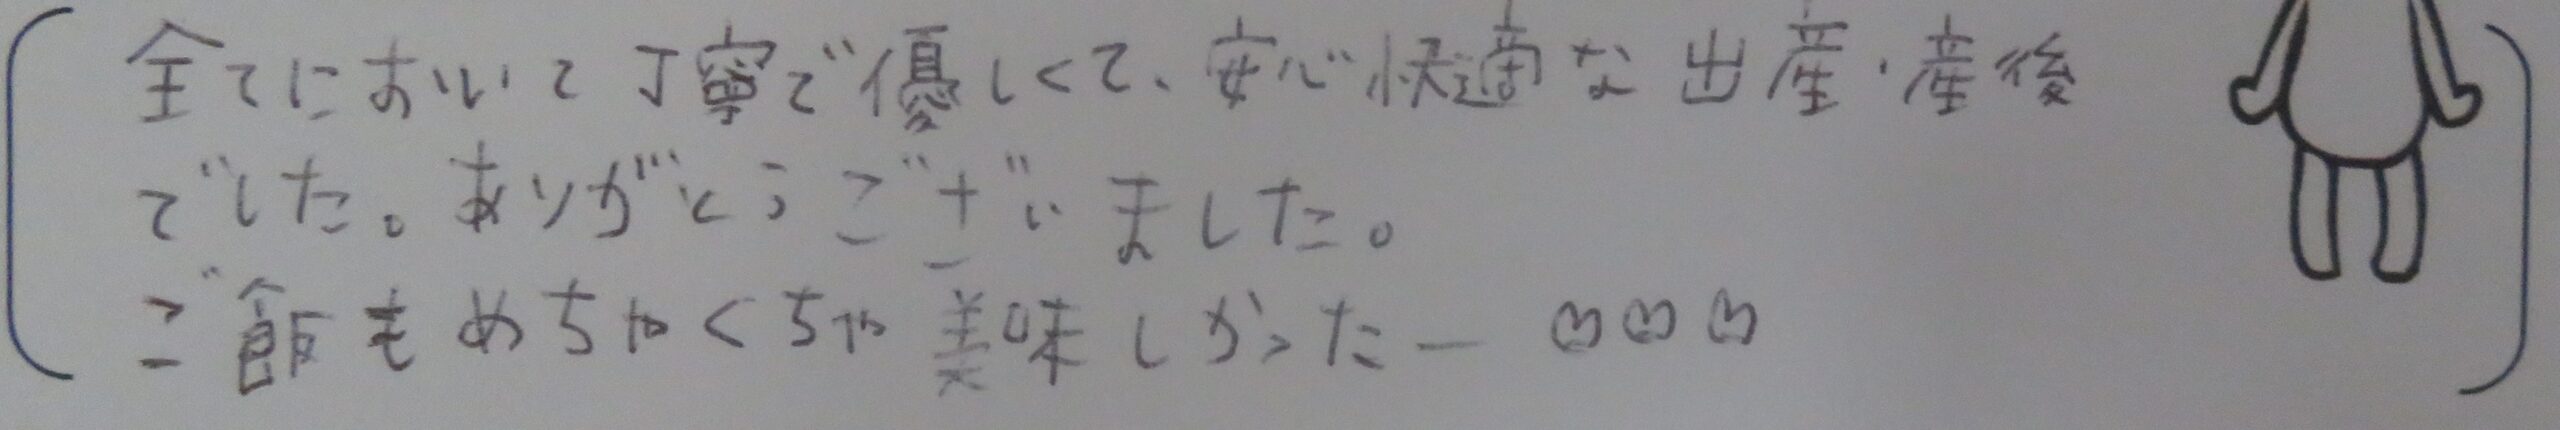 全てにおいて丁寧で優しくて、安心快適な出産・産後
でした。ありがとうございました。
ご飯もめちゃくちゃ美味しかったー♡♡♡